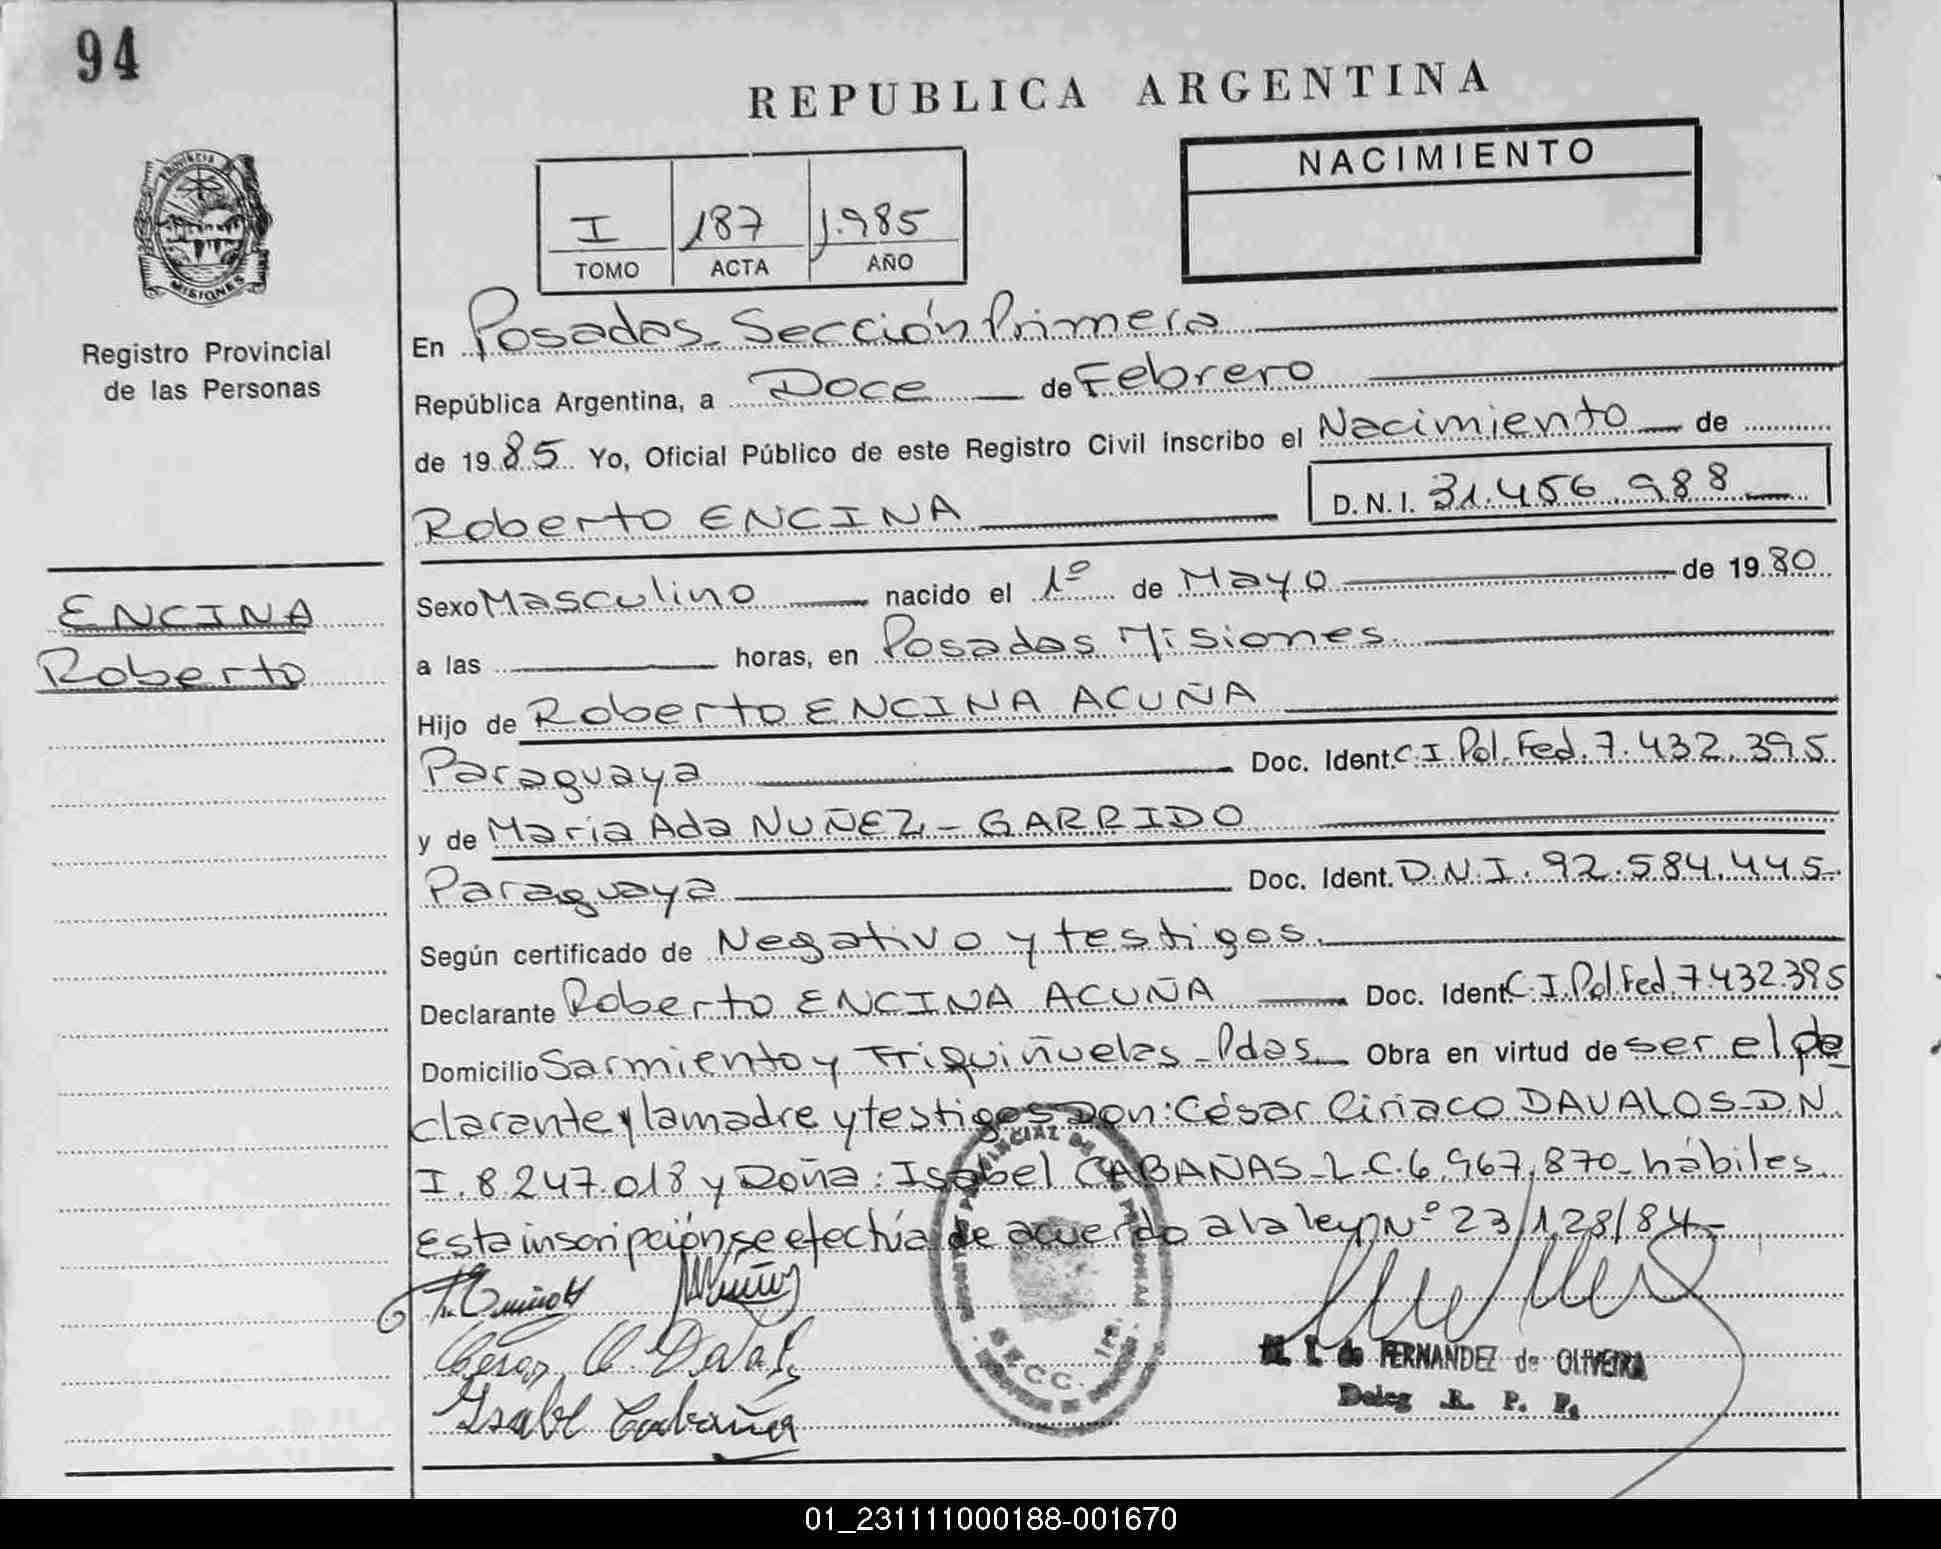 94
REPUBLICA ARGENTINA
NACIMIENTO
I 187 1.985
TOMO ACTA AÑO
PROVINCIA
MISIONES
Registro Provincial
de las Personas
ENCINA
Roberto
En Posadas Sección Primera
República Argentina, a Doce de Febrero
de 1985 Yo, Oficial Público de este Registro Civil inscribo el Nacimiento de
Roberto ENCINA D.N.I. 31.456.988
Sexo Masculino nacido el 1º de Mayo de 1980
a las horas, en Posadas Misiones.
Hijo de Roberto ENCINA ACUÑA
Paraguaya Doc. Ident. C.I. Pol. Fed. 7.432.395
y de Maria Ada NUÑEZ - GARRIDO
Paraguaya Doc. Ident. D.N.I. 92.584.445.
Según certificado de Negativo y testigos.
Declarante Roberto ENCINA ACUÑA Doc. Ident. C.I. Pol. Fed. 7.432.395
Domicilio Sarmiento y Triquiñuelas - Pdas. Obra en virtud de ser el de
clarante y la madre y testigos Don: César Ciriaco DAVALOS - D.N.
I. 8.247.018 y Doña: Isabel CABAÑAS - L.C. 6.967.870 - hábiles
Esta inscripción se efectúa de acuerdo a la ley Nº 23/128/84 -
Isabel Cabaña
FERNANDEZ de OLIVEIRA
Deleg. R. P. P.
SECC. 1ra.
01_231111000188-001670